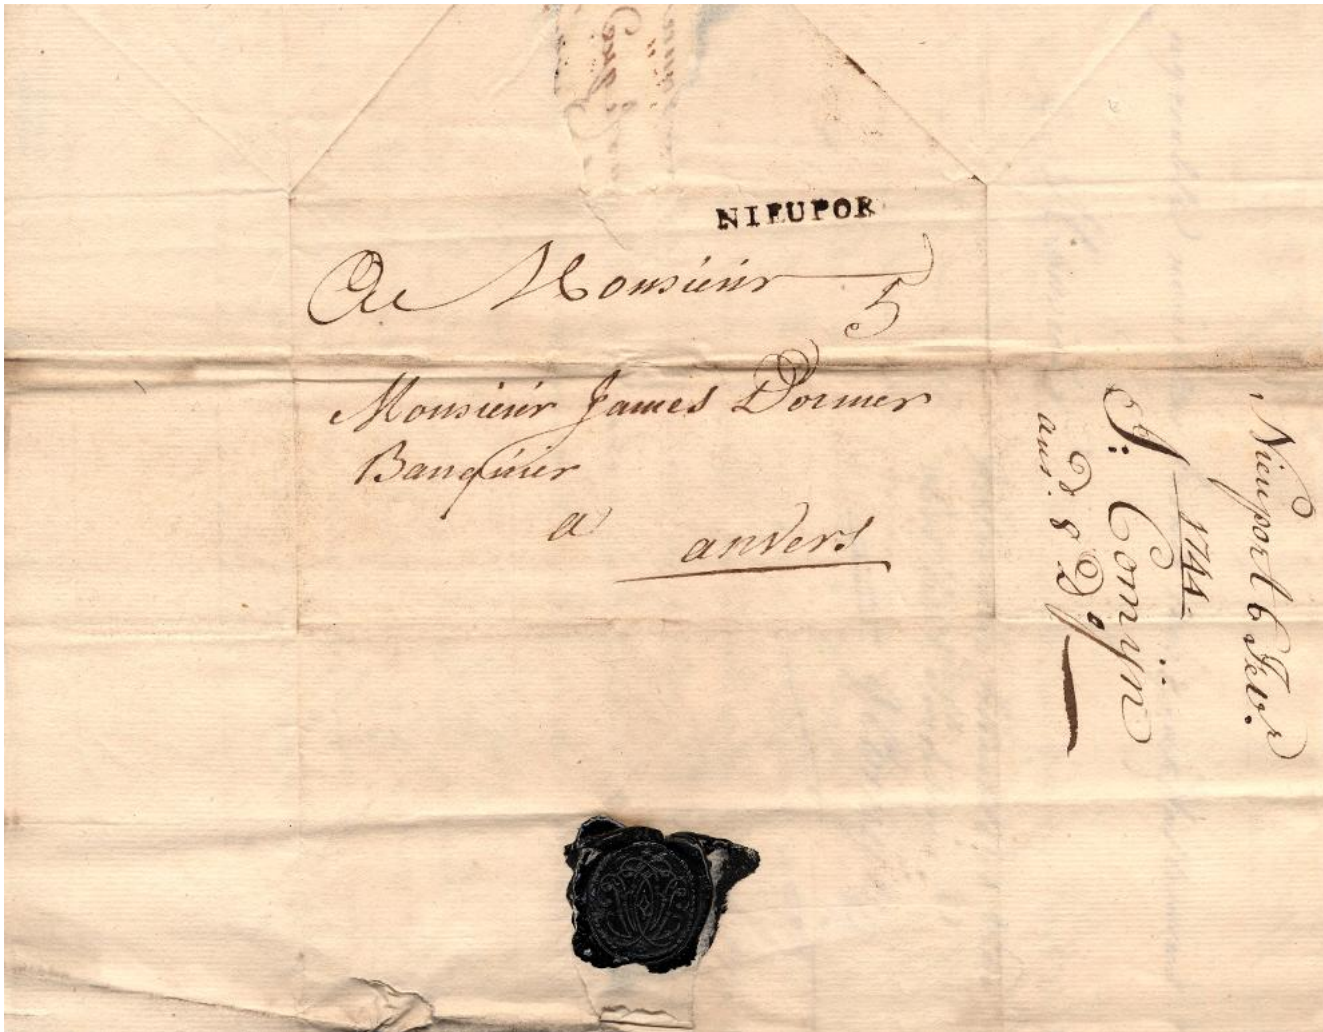 NIEUPOR
A Monsieur
5
Monsieur James Dormer
Banquier
a
anvers
Nieuport 6 Febr.
1744.
J: Comÿn
ans.d 8 Dº